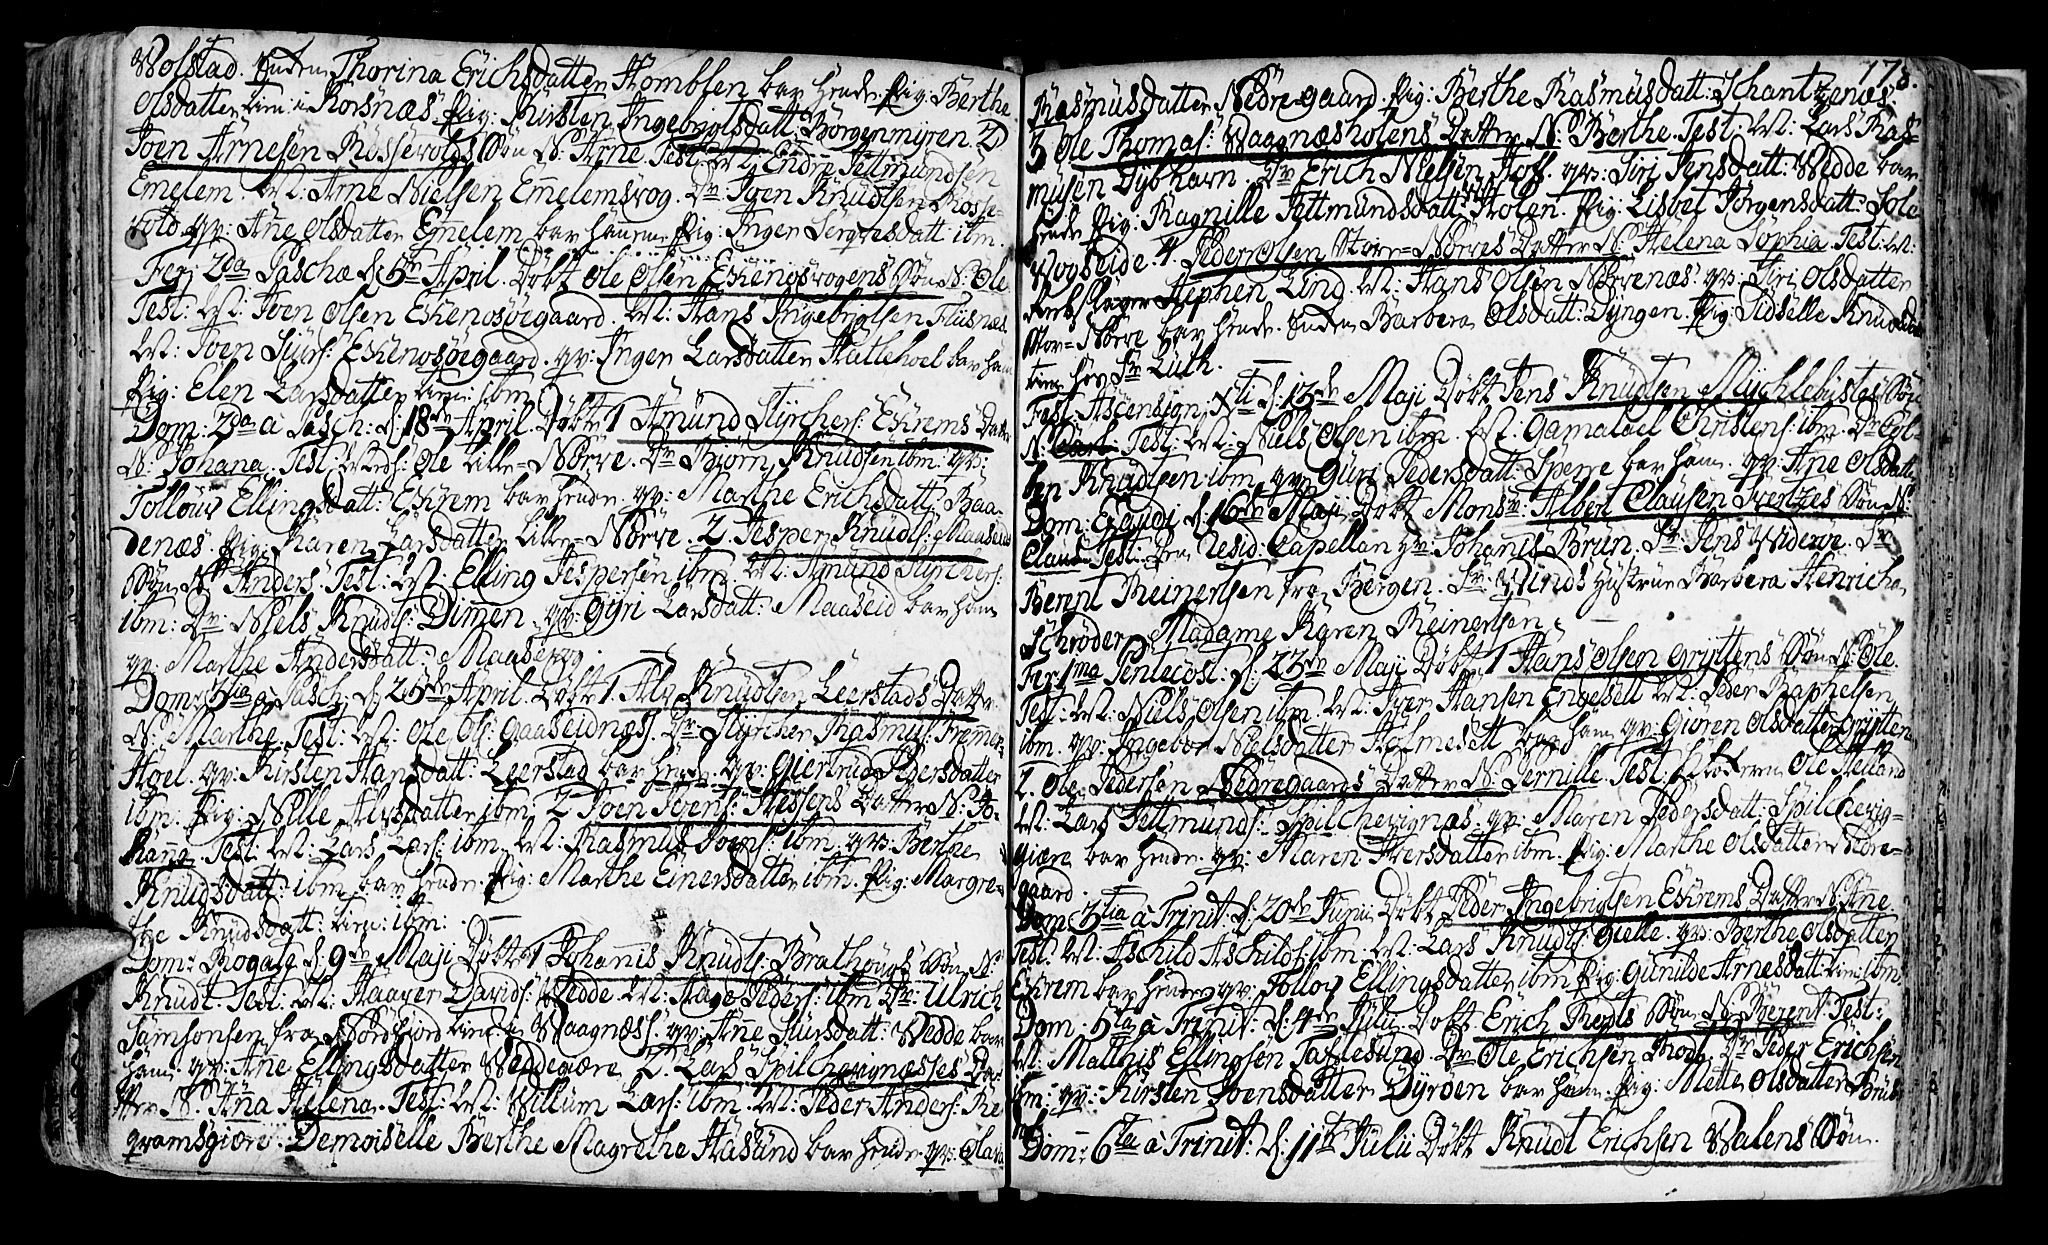 Wolstad. Enden Thorina Erichsdatter Homblen bar hende. Pig: Berthe
Olsdatter tien: i Korsnæs Pig: Kirsten Ingebrigtsdatt: Borgenmyren. 2
Joen Arnesen Røssevolds Søn N: Arne. Test: Endre Pettmundsen
Emelem. Arne Nielsen Emelemsvog. Dr Joen Knudsen Røsse-
vold. qv: Ane Olsdatter Emelem bar hanem. Pig: Inger Sergresdatt: ibm.
Fer: 2da Paschæ d: 5te April. Døbt Ole Olsen Eskenosvogens Søn N: Ole
Test: Joen Olsen Eskenosøegaard. Hans Ingebrigtsen Flisnæs.
Joen Siurs: Eskenosøegaard. qv: Inger Larsdatter Hatlehoel bar han
Pig: Elen Larsdatter tien: ibm
Dom: 3a à Pasch: d: 18de April. Døbt 1 Amund Styrchers: Eskrems Datter
N: Johana. Test: Ole Lille-Nørve. Dr Biørn Knudsen ibm. qv:
Follow Ellingsdatt: Eskrem bar hende. qv: Marthe Erichsdatt: Baa-
denæs. Pig: Karen Larsdatter Lille-Nørve. 2. Jesper Knuds: Maaseids
Søn N: Anders Test: Elling Jespersen ibm. Amund Styrchers:
ibm: Dr Niels Knuds: Dimen. qv: Gyri Larsdatt: Maaseid bar han
qv: Marthe Andersdatt: Maasevog.
Dom: à Pasch: d: 25de April. Døbt 1. Alv Knudsen Leerstads Datter
N: Marthe. Test: Ole Ols: Gaaseidnæs. Dr Styrcher Rasmus: Fremer-
Hoel. qv: Kirsten Hansdatt: Leerstad bar hende. qv: Giertrud Pedersdatter
ibm. Pig: Nille Alvsdatter ibm. 2 Joen Joens: Hessens Datter N: Jo-
hanna. Test: Lars Lars: ibm. Rasmus Joens: ibm. qv: Berthe
Knudsdatt: ibm bar hende. Pig: Marthe Einersdatter ibm. Pig: Margre-
the Knudsdatt: tien: ibm:
Dom: Rogate d: 9de Maji Døbt 1 Johanis Knuds: Brathougs Søn N:
Knudt. Test: Haaver Davids: Vedde. Hage Peders: ibm Dr: Ulrich
Samsonsen fra Nordfiord tien: i Waagnæs: qv: Anne Siursdatt: Vedde bar
han. qv: Ane Ellingsdatter Veddegiære. 2. Lars Spilchevignæsses Dat-
ter N. Ana Helena. Test: Willum Lars: ibm. Peder Anders: Re
gramsgiære. Demoiselle Berthe Magrethe Hasund bar hende. qv: Olava
178.
Rasmusdatter Nedre-gaard. Pig: Berthe Rasmusdatt: Schantzenæs.
3 Ole Thomas: Waagnæsholens Datter N: Berthe. Test: Lars Ras-
musen Dybhavn. Dr Erich Nielsen Hoff. qv: Siri Jensdatt: Vedde bar
hende. Pig: Ragnille Pettmundsdatt: Holen. Pig: Lisbet Jørgensdatt: Sole
vogseide. 4. Peder Olsen Store-Nørves Datter N: Helena Sophia. Test:
Stephen Lind. Hans Olsen Nørvenæs. qv: Siri Olsdatter
Stor-Nørve bar hende. Enden Barbera Olsdatt: Dyngen. Pig: Sidselle Knudsdatt
tien: hos Sr Luth.
Fest: Ascension: Xti d: 13de Maji Døbt Jens Knudsen Mychlebustes Søn
N: Carl. Test: Niels Olsen ibm. Gamalael Christens: ibm. Dr Col-
ben Knudsen ibm. qv: Guri Pedersdatt: Sperre bar han. qv: Ane Olsdatt:
Dom: Exaudi d: 16de Maji Døbt Monsr: Albert Clausen Svertzes Søn N:
Claus Test: Resid: Capellan Hr: Johanis Brun. Sr Jens Widerve. Sr
Berent Reinertsen fra Bergen. Sr: Winds Hustrue Barbera Henricha
Schrøder. Madame Karen Reinertsen.
Fer: 1ma Pentecost: d: 23de Maji Døbt 1 Hans Olsen Gryttens Søn N: Ole.
Test: Niels Olsen ibm. Iver Hansen Engesett Peder Raphelsen
ibm. qv: Ingebor Nielsdatter Holmesett bar han. qv: Giøren Olsdatter Grytten
2. Ole Pedersen Nedregaards Datter N: Pernille. Test: Ole Helland
Lars Pettmunds: Spilchevignæs. qv: Maren Pedersdatt: Spilchevig-
giære bar hende. qv: Maren Iversdatter ibm. Pig: Marthe Olsdatter Nedre-
gaard.
Dom: 3tia à Trinit: d: 20de Junii Døbt Peder Ingebrigtsen Eskrems Datter N: Ane.
Test: Aschild Aschilds: ibm. Lars Knuds: Gielle. qv: Berthe Olsdatter
Eskrem bar hende. qv: Follov Ellingsdatter ibm. Pig: Gunilde Arnesdatt: tien: ibm.
Dom: 5ta à Trinit: d: 4de Julii Døbt Erich Rogts Søn N: Berent. Test:
Matthis Ellingsen Taftesund. Dr Ole Erichsen Rogt. Dr Peder Erichsen
ibm: qv: Kirsten Joensdatter Dyrøen bar han. Pig: Mette Olsdatter
Dom: 6ta à Trinit: d: 11te Julii Døbt Knudt Erichsen Walens Søn